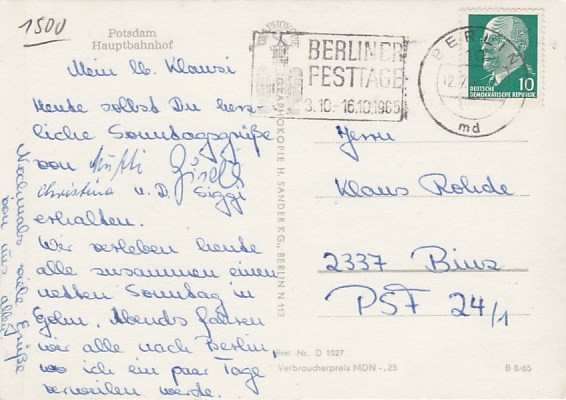 1500
Potsdam
Hauptbahnhof
Mein lb. Klausi
Heute sollst Du herz-
liche Sonntagsgrüße
von Mutti Gisela
Christina u. D. Siggi
erhalten.
Wir verleben heute
alle zusammen einen
netten Sonntag in
Golm. Abends fahren
wir alle nach Berlin,
wo ich ein paar Tage
verweilen werde.
Nochmals viele Grüße
von uns allen
GRAPHOKOPIE H. SANDER KG., BERLIN N 113
BERLINER
FESTTAGE
3.10.-16.10.1965
BERLIN
md
10
DEUTSCHE
DEMOKRATISCHE REPUBLIK
Herrn
Klaus Rohde
2337 Binz
PSF 24/1
Best. Nr. D 1027
Verbraucherpreis MDN -,25
B 8/65